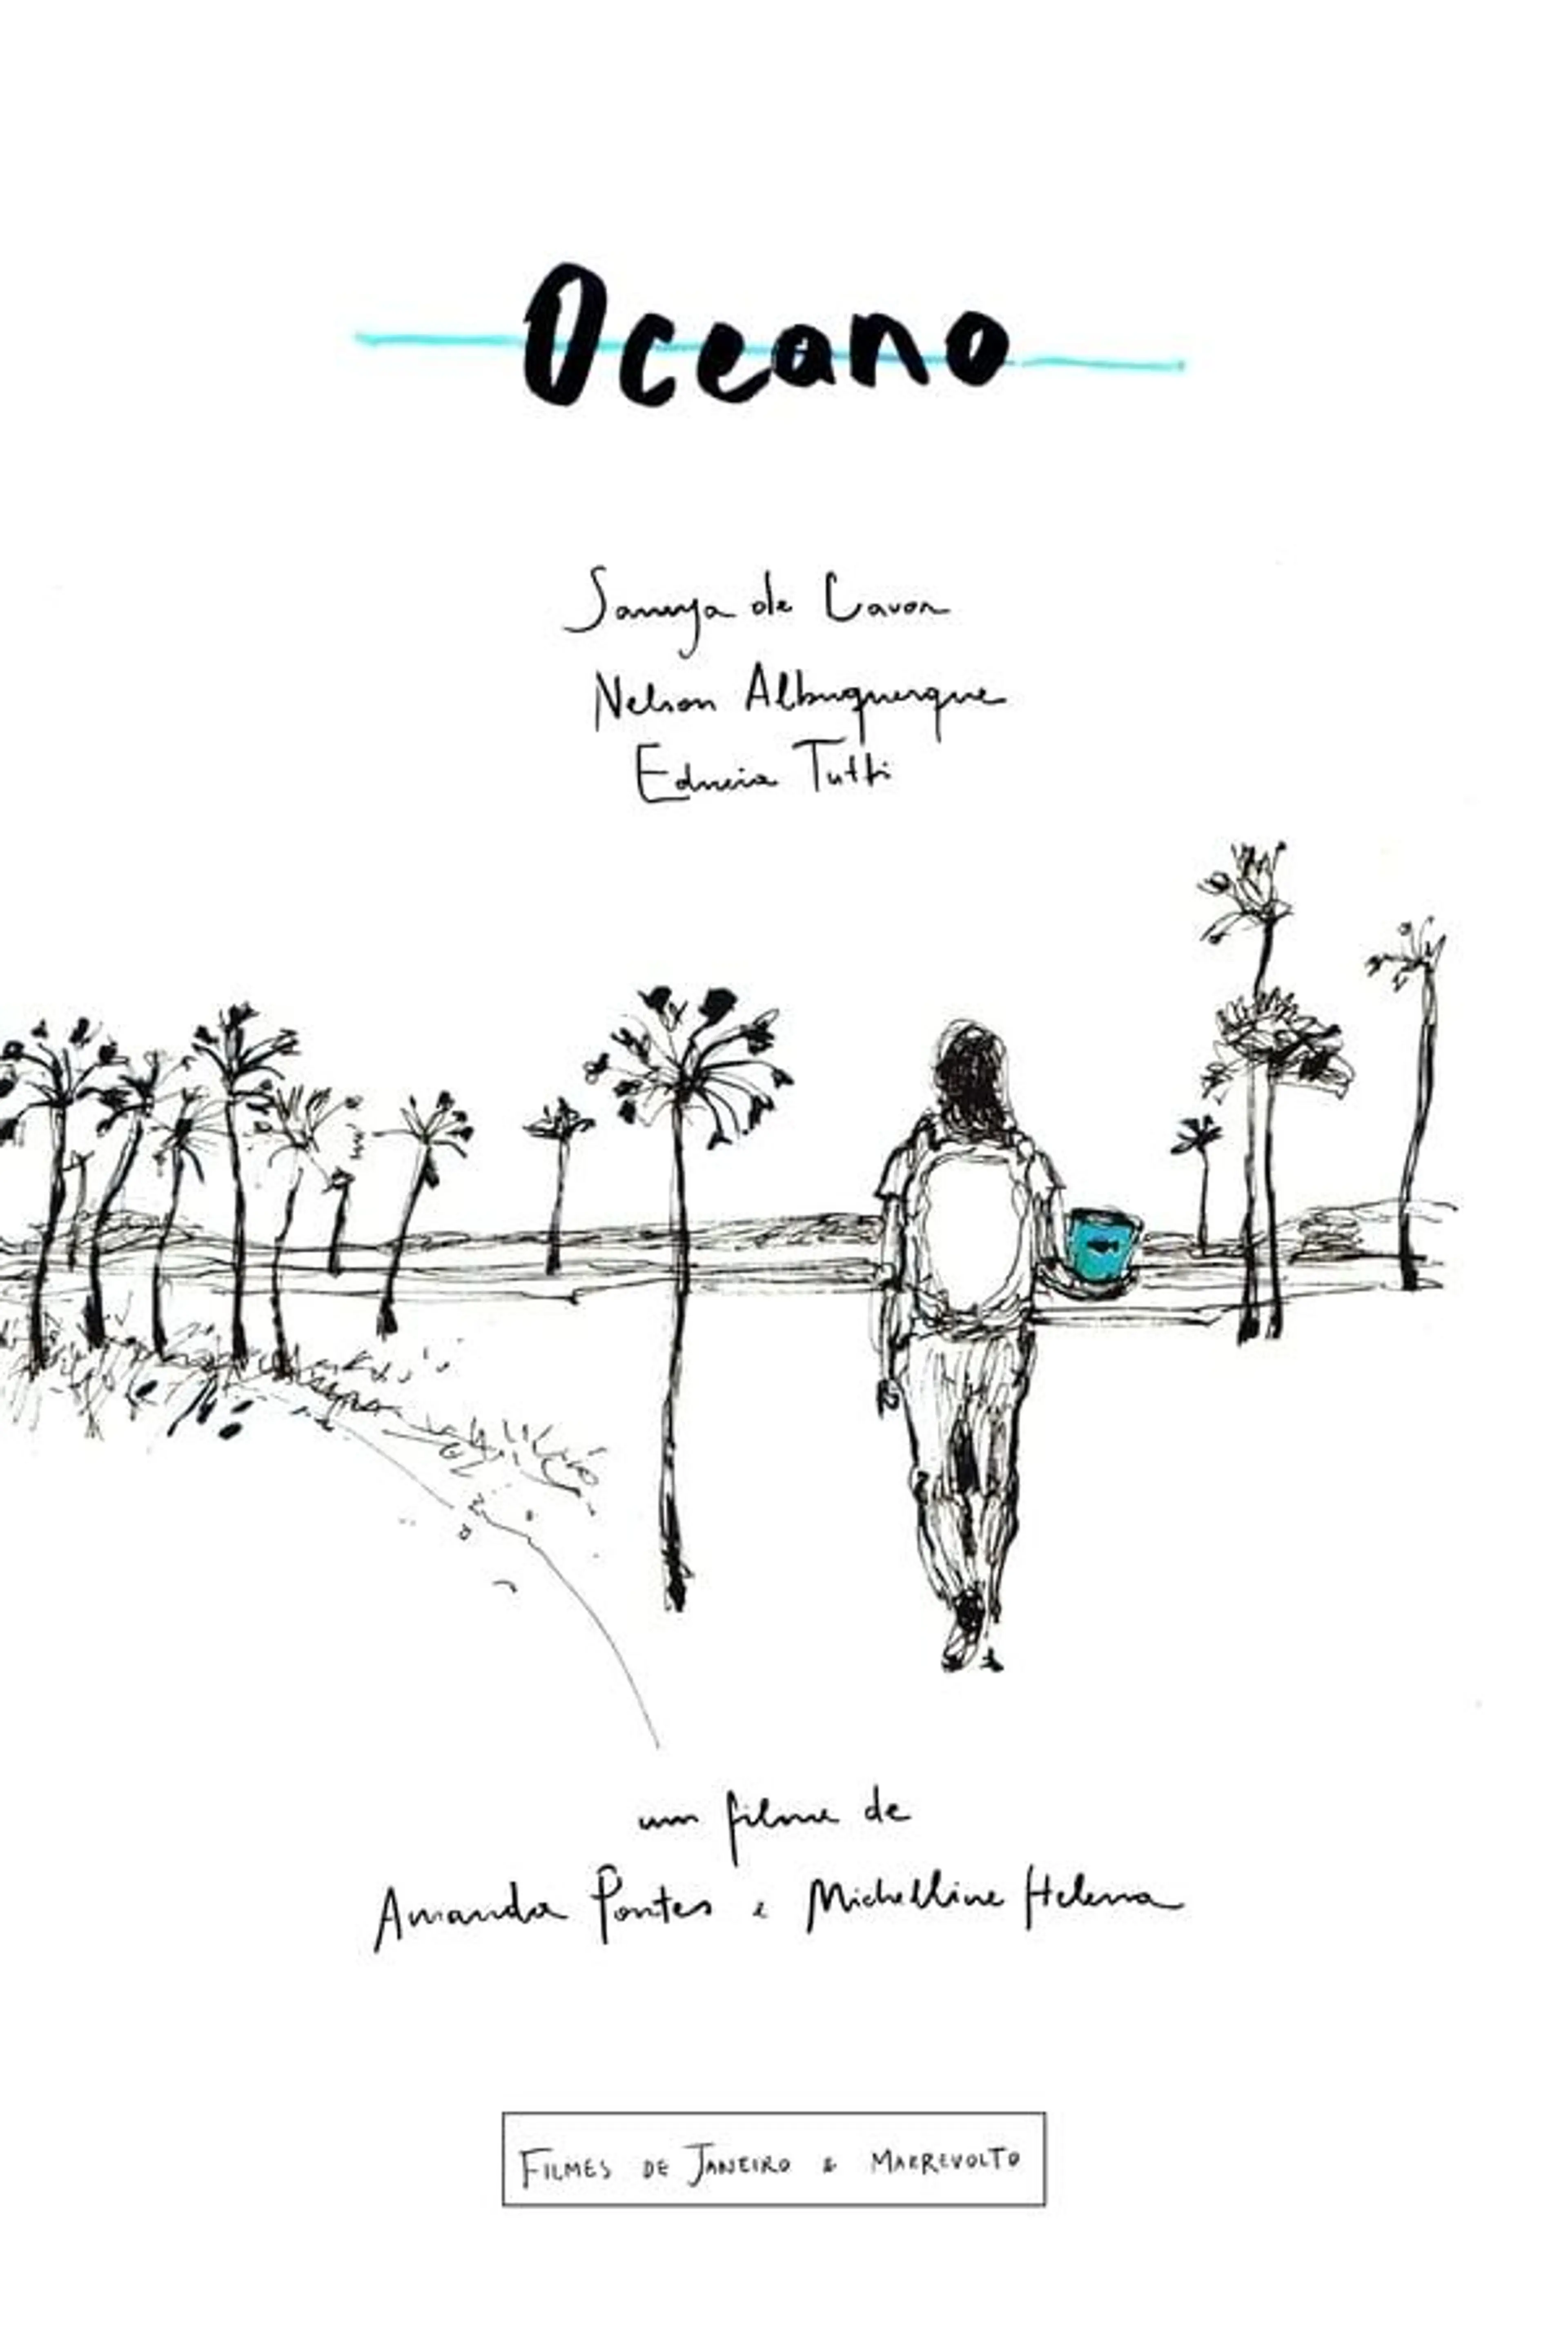 Oceano
Samya de Lavor
Nelson Albuquerque
Edneia Tutti
um filme de
Amanda Pontes e Michelline Helena
FILMES DE JANEIRO & MARREVOLTO